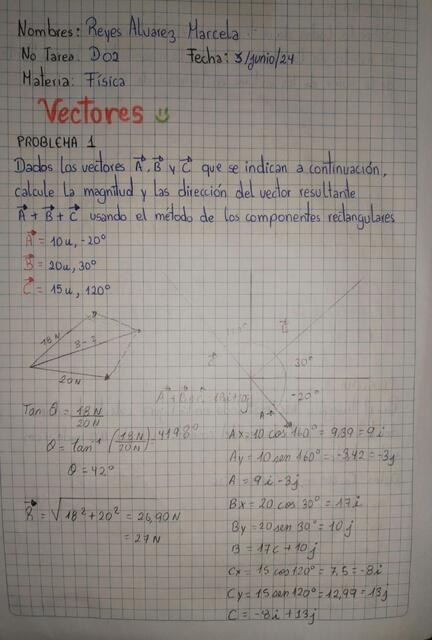 Nombres: Reyes Alvarez Marcela
No Tarea: D02 Fecha: 3/junio/24
Materia: Física
Vectores
PROBLEMA 1
Dados los vectores A, B y C que se indican a continuación,
calcule la magnitud y las dirección del vector resultante
A + B + C usando el método de los componentes rectangulares
A = 10u, -20°
B = 20u, 30°
C = 15u, 120°
18 N
20 N
30°
-20°
A
Tan θ = 18N/20N
θ = tan⁻¹ (18N/20N) = 41.98°
θ = 42°
R = √18² + 20² = 26,90 N
= 27 N
Ax = 10 cos 160° = 9,39 = 9i
Ay = 10 sen 160° = -3,42 = -3j
A = 9i - 3j
Bx = 20 cos 30° = 17i
By = 20 sen 30° = 10j
B = 17i + 10j
Cx = 15 cos 120° = 7,5 = -8i
Cy = 15 sen 120° = 12,99 = 13j
C = -8i + 13j